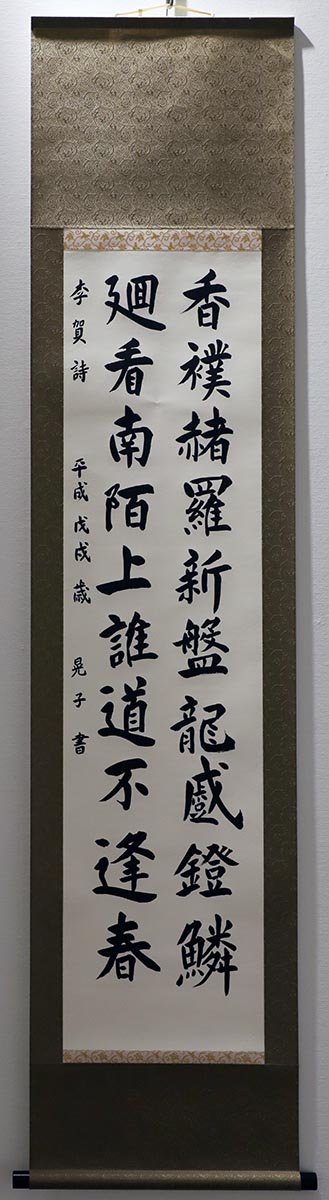 香襆赭羅新盤龍蹙鐙鱗
廻看南陌上誰道不逢春
李賀詩 平成戊戌歳 晃子書